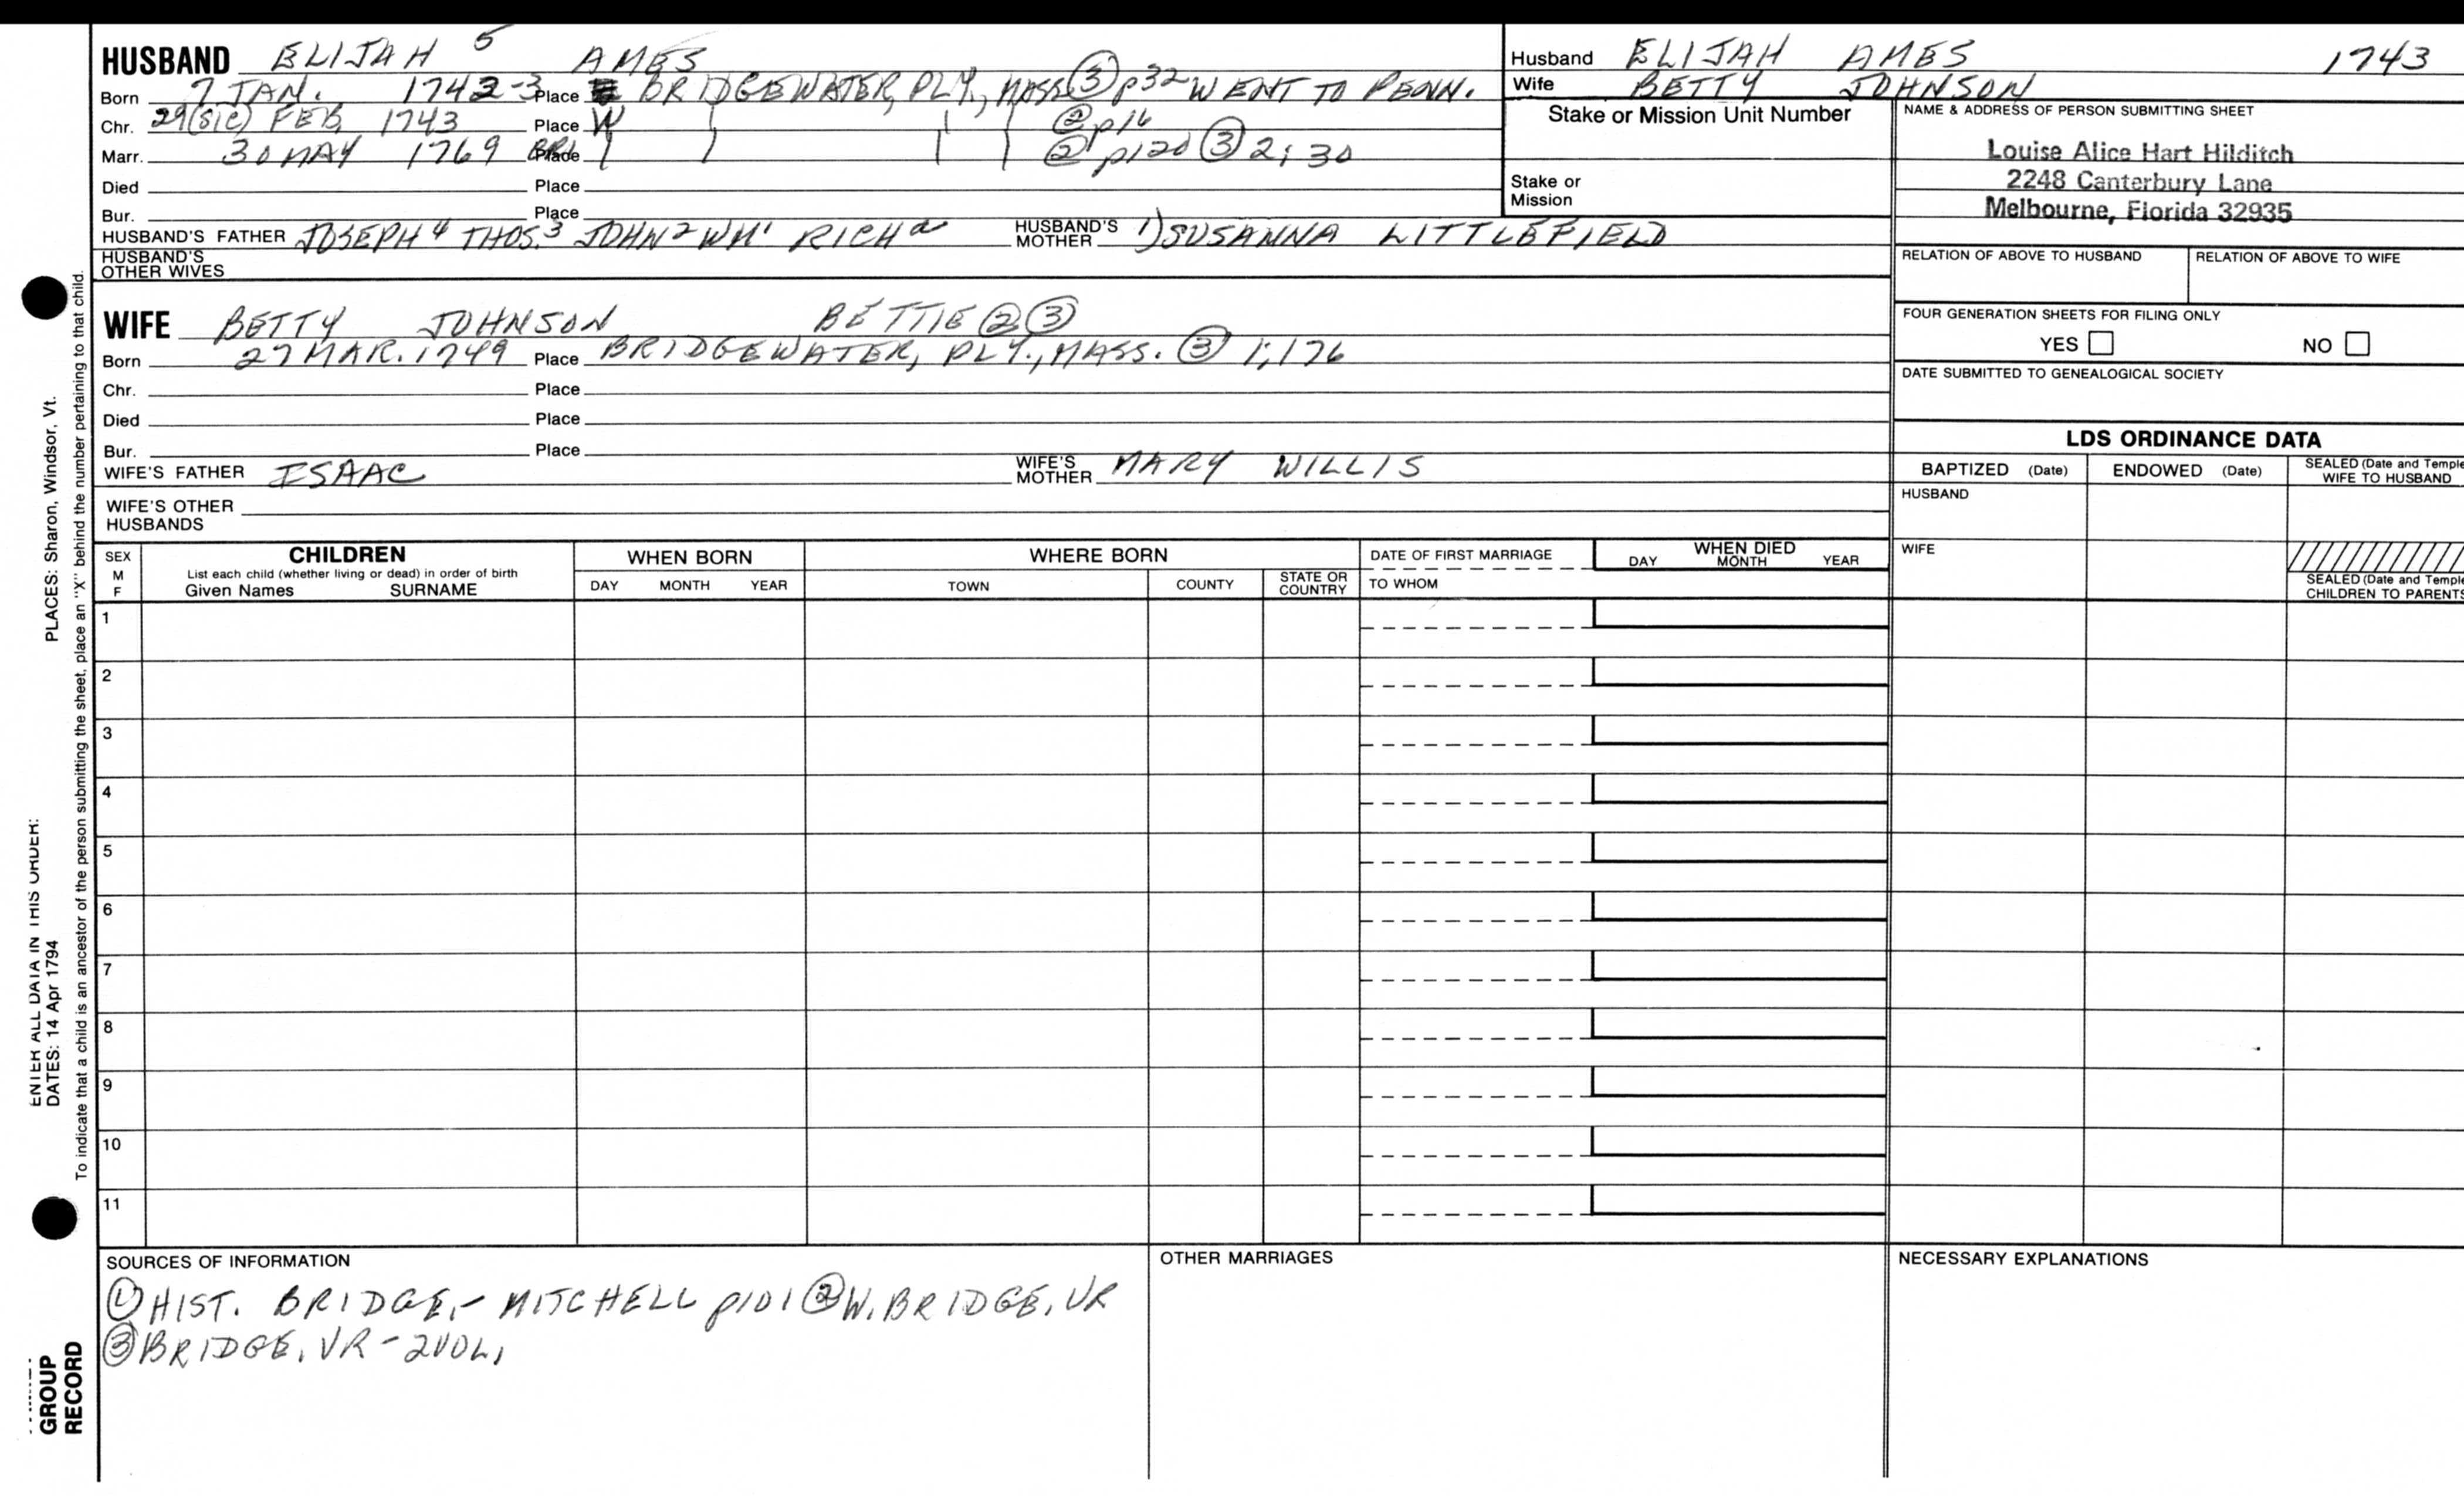 HUSBAND ELIJAH 5 AMES
Born 7 JAN. 1742-3 Place BRIDGEWATER, PLY., MASS. ③ p32 WENT TO PENN.
Chr. 29(SIC) FEB. 1743 Place W ② p16
Marr. 30 MAY 1769 Place ② p120 ③ 2;30
Died Place
Bur. Place
HUSBAND'S FATHER JOSEPH4 THOS.3 JOHN2 WM1 RICHa HUSBAND'S MOTHER 1) SUSANNA LITTLEFIELD
HUSBAND'S OTHER WIVES
WIFE BETTY JOHNSON BETTIE ② ③
Born 27 MAR. 1749 Place BRIDGEWATER, PLY., MASS. ③ 1;176
Chr. Place
Died Place
Bur. Place
WIFE'S FATHER ISAAC WIFE'S MOTHER MARY WILLIS
WIFE'S OTHER HUSBANDS
Husband ELIJAH AMES 1743
Wife BETTY JOHNSON
Stake or Mission Unit Number
Stake or Mission
NAME & ADDRESS OF PERSON SUBMITTING SHEET
Louise Alice Hart Hilditch
2248 Canterbury Lane
Melbourne, Florida 32935
RELATION OF ABOVE TO HUSBAND RELATION OF ABOVE TO WIFE
FOUR GENERATION SHEETS FOR FILING ONLY
YES NO
DATE SUBMITTED TO GENEALOGICAL SOCIETY
LDS ORDINANCE DATA
BAPTIZED (Date) ENDOWED (Date) SEALED (Date and Temple
WIFE TO HUSBAND
HUSBAND
WIFE
SEALED (Date and Temple
CHILDREN TO PARENTS
SEX M F
CHILDREN
List each child (whether living or dead) in order of birth
Given Names SURNAME
WHEN BORN
DAY MONTH YEAR
WHERE BORN
TOWN COUNTY STATE OR COUNTRY
DATE OF FIRST MARRIAGE
TO WHOM
WHEN DIED
DAY MONTH YEAR
1
2
3
4
5
6
7
8
9
10
11
SOURCES OF INFORMATION
① HIST. BRIDGE,- MITCHELL p101 ② W. BRIDGE. VR
③ BRIDGE. VR - 2VOL,
OTHER MARRIAGES
NECESSARY EXPLANATIONS
ENTER ALL DATA IN THIS ORDER:
DATES: 14 Apr 1794 PLACES: Sharon, Windsor, Vt.
To indicate that a child is an ancestor of the person submitting the sheet, place an "X" behind the number pertaining to that child.
GROUP
RECORD